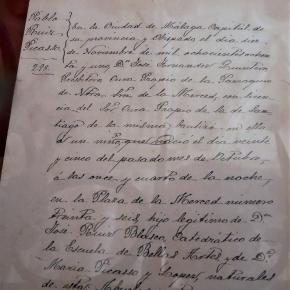 Pablo
Ruiz
Picasso
298.
En la Ciudad de Málaga Capital de
su provincia y Obispado el dia diez
de Noviembre de mil ochocientos ochen
ta y uno, D. José Fernandez
Cura Propio de la Parroquia
de Ntra. Sra. de la Merced, con licen
cia del Sor. Cura Propio de la de San
tiago de la misma, bautizó en ella
á un niño que nació el dia veinte
y cinco del pasado mes de Octubre,
á las once y cuarto de la noche,
en la Plaza de la Merced número
treinta y seis, hijo legítimo de Dn.
José Ruiz Blasco, Catedrático de
la Escuela de Bellas Artes y de Dª.
Maria Picasso y Lopez, naturales
de esta